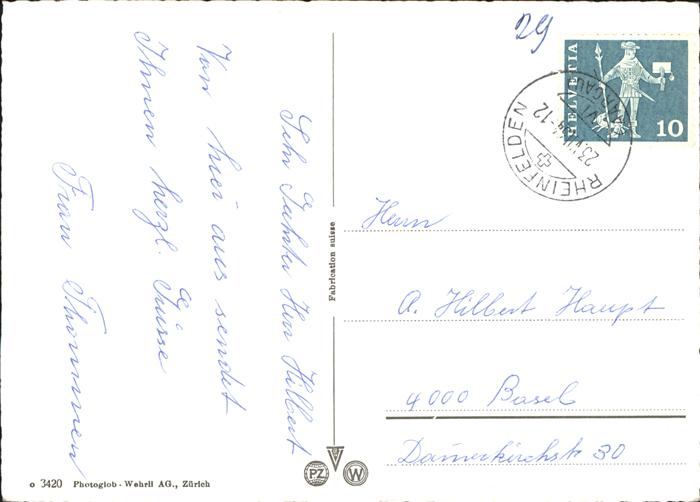 29
HELVETIA
10
RHEINFELDEN
Sehr Geehrter Herr Hilbert
Von hier aus sendet
Ihnen herzl. Grüsse
Frau Thommen
Fabrication suisse
Herrn
A. Hilbert Haupt
4000 Basel
Damerkirchstr 30
o 3420 Photoglob - Wehrli AG., Zürich
PZ
W